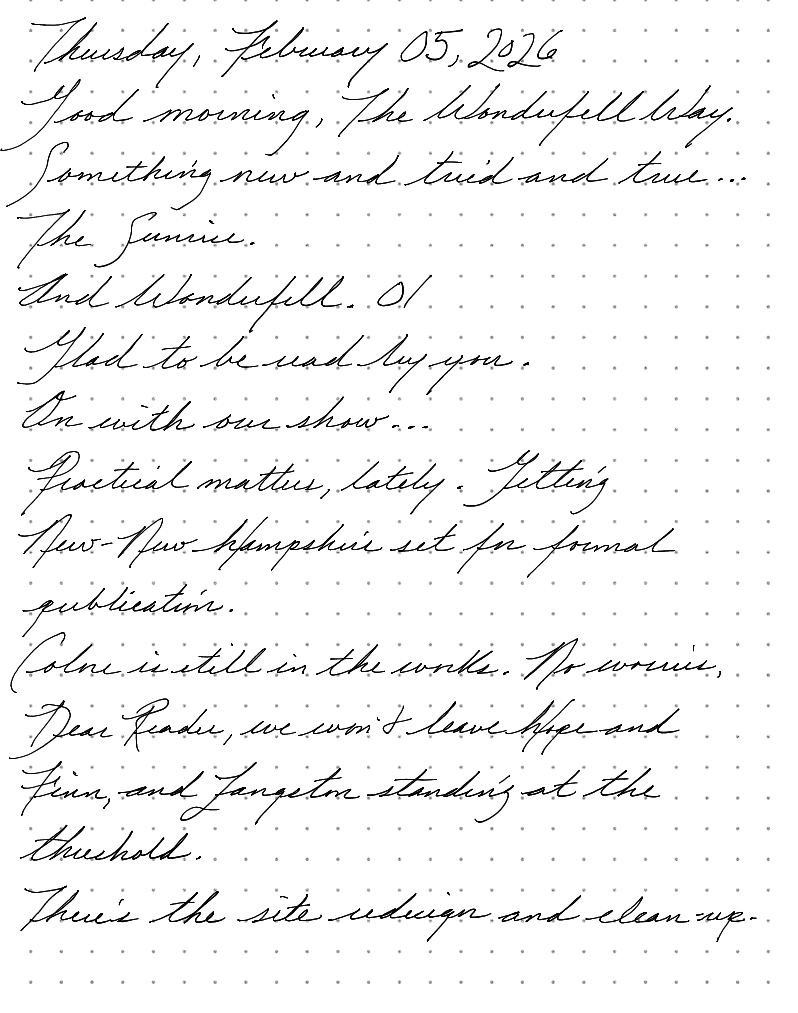 Thursday, February 05, 2026
Good morning, The Wonderfell Way.
Something new and tried and true...
The Sunrise.
And Wonderfell. 01
Glad to be read by you.
On with our show...
Practical matters, lately. Getting
New-New Hampshire set for formal
publication.
Colne is still in the works. No worries,
Dear Reader, we won't leave Hope and
Finn, and Langston standing at the
threshold.
There's the site redesign and clean-up.